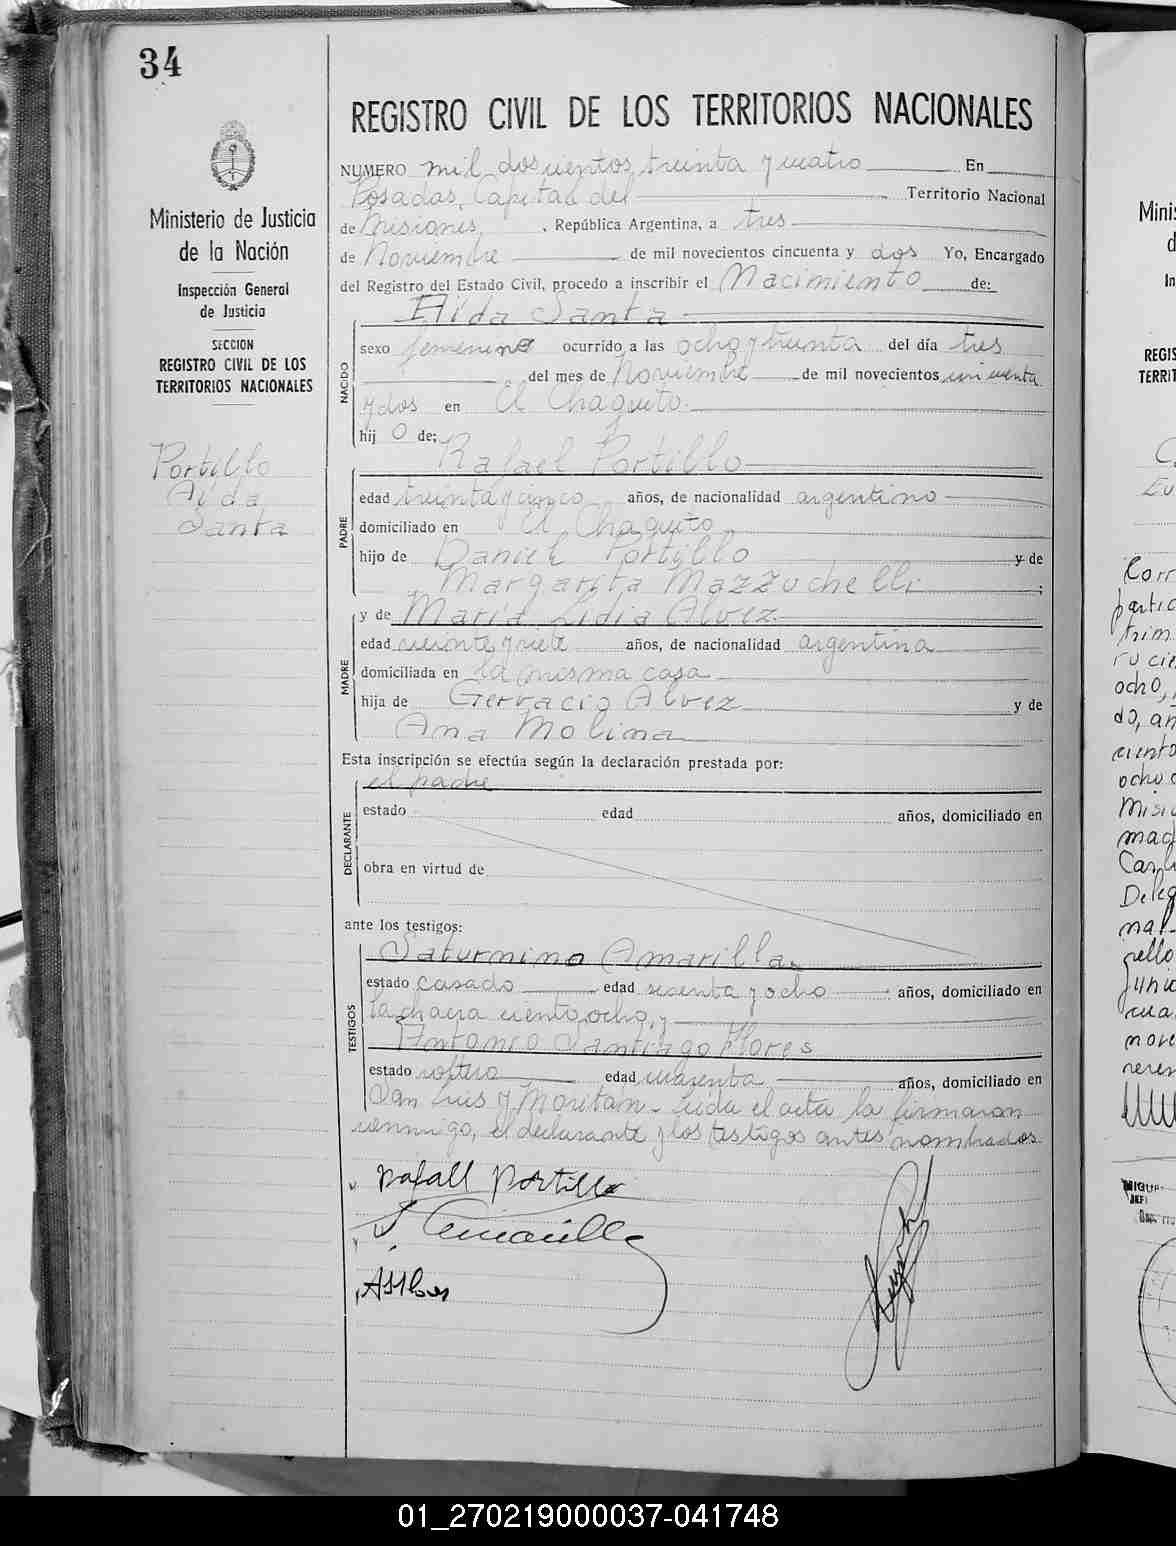 34
REGISTRO CIVIL DE LOS TERRITORIOS NACIONALES
Ministerio de Justicia
de la Nación
Inspección General
de Justicia
SECCION
REGISTRO CIVIL DE LOS
TERRITORIOS NACIONALES
Portillo
Aida
Santa
NUMERO mil doscientos treinta y cuatro En
Posadas, Capital del Territorio Nacional
de Misiones, República Argentina, a tres
de Noviembre de mil novecientos cincuenta y dos Yo, Encargado
del Registro del Estado Civil, procedo a inscribir el Nacimiento de:
NACIDO
Aida Santa
sexo femenino ocurrido a las ocho y treinta del día tres
del mes de Noviembre de mil novecientos cincuenta
y dos en El Chaquito.
hijo de:
PADRE
Rafael Portillo
edad treinta y cinco años, de nacionalidad argentino
domiciliado en El Chaquito
hijo de Daniel Portillo y de
Margarita Mazzuchelli;
MADRE
y de María Lidia Alvez
edad veinte y siete años, de nacionalidad argentina
domiciliada en la misma casa
hija de Gervacio Alvez y de
Ana Molina
Esta inscripción se efectúa según la declaración prestada por:
DECLARANTE
el padre
estado edad años, domiciliado en
obra en virtud de
ante los testigos:
TESTIGOS
Saturnino Amarilla
estado casado edad sesenta y ocho años, domiciliado en
la chacra ciento ocho, y
Antonio Santiago Flores
estado soltero edad cuarenta años, domiciliado en
San Luis y Moritán. Leida el acta la firmaron
conmigo, el declarante y los testigos antes nombrados.
Rafall Portillo
S. Amarilla
Minis
REGIS
TERRIT
ocho,
ocho
01_270219000037-041748